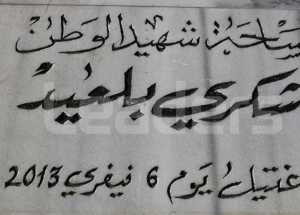 ساحة شهيد الوطن
شكري بلعيد
leaders
اغتيل يوم 6 فيفري 2013